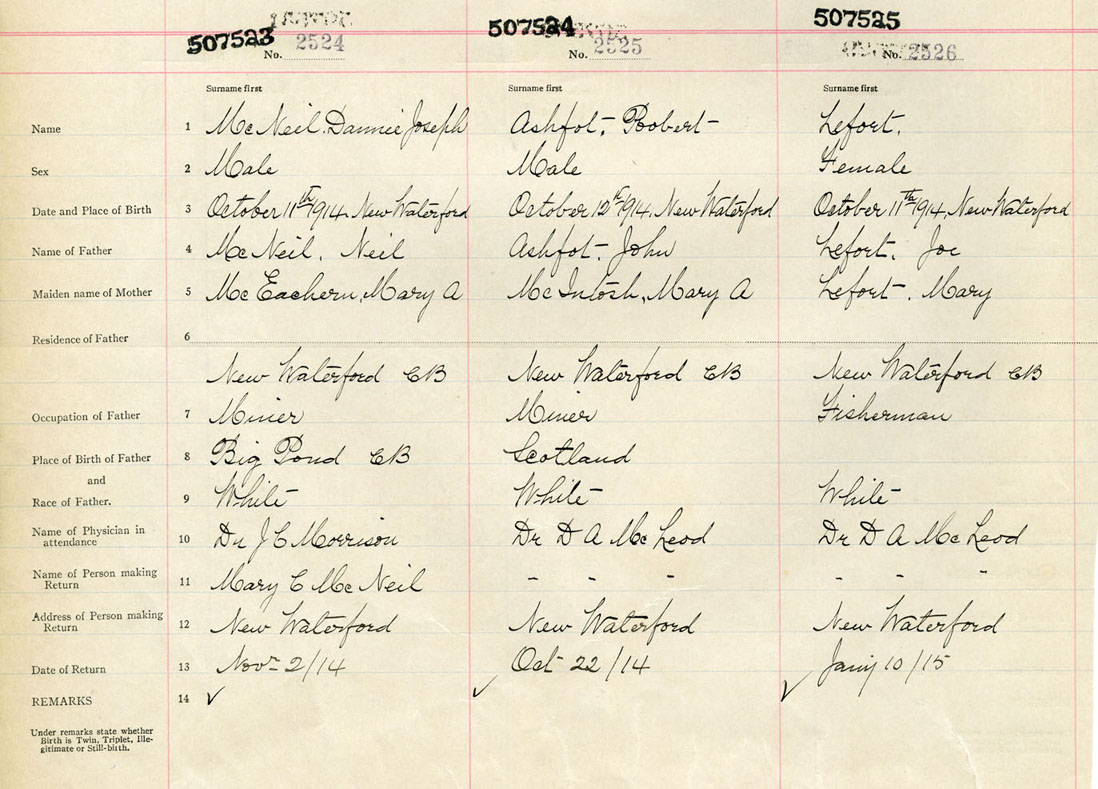 507523 507524 507525
No. 2524 No. 2525 No. 2526
Surname first Surname first Surname first
Name 1 McNeil. Dannie Joseph Ashfot, Robert Lefort.
Sex 2 Male Male Female
Date and Place of Birth 3 October 11th 1914. New Waterford October 12th 1914. New Waterford October 11th 1914. New Waterford
Name of Father 4 McNeil. Neil Ashfot, John Lefort. Joe
Maiden name of Mother 5 McEachern, Mary A McIntosh, Mary A Lefort. Mary
Residence of Father 6
New Waterford CB New Waterford CB New Waterford CB
Occupation of Father 7 Miner Miner Fisherman
Place of Birth of Father 8 Big Pond CB Scotland
and
Race of Father. 9 White White White
Name of Physician in
attendance 10 Dr J C Morrison Dr D A McLeod Dr D A McLeod
Name of Person making
Return 11 Mary C McNeil " " " " " "
Address of Person making
Return 12 New Waterford New Waterford New Waterford
Date of Return 13 Novr 2/14 Oct 22/14 Jany 10/15
REMARKS 14 ✓ ✓ ✓
Under remarks state whether
Birth is Twin, Triplet, Ille-
gitimate or Still-birth.